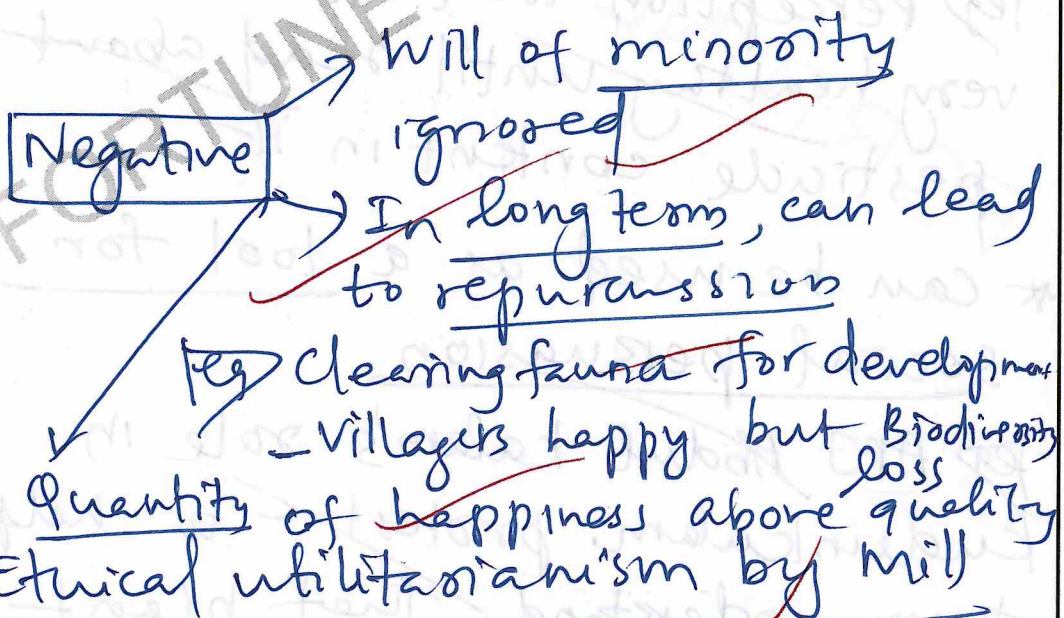 FORTUNE
Will of minority
Negative
ignored
In long term, can lead
to repurcussion
eg Clearing fauna for development
- Villagers happy but Biodiversity
loss
Quantity of happiness above quality
Ethical utilitarianism by Mill